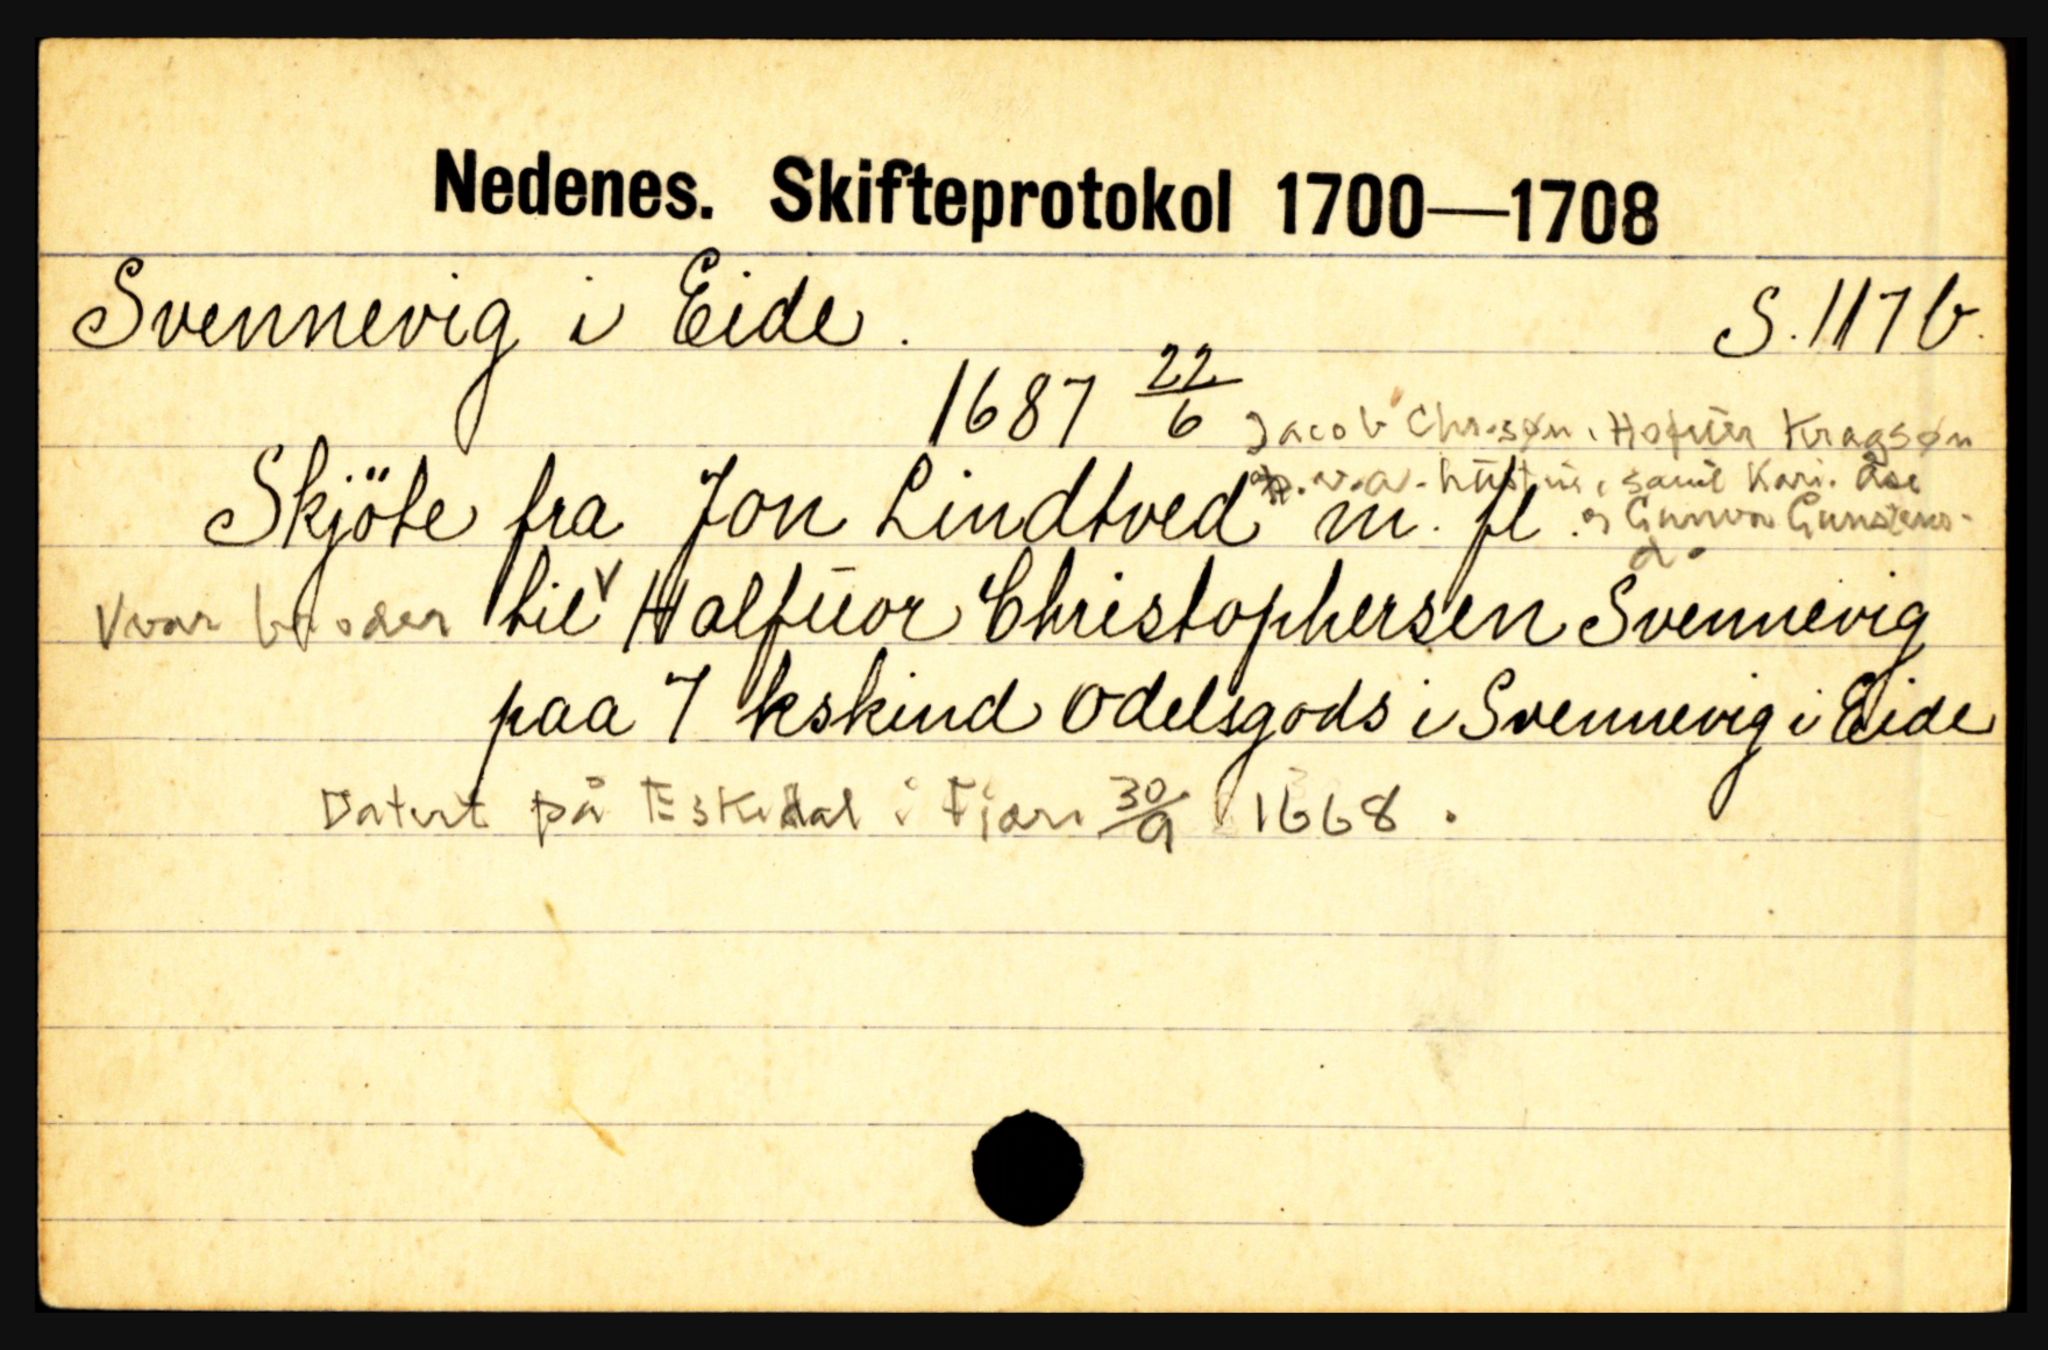 Nedenes. Skifteprotokol 1700—1708
Svennevig i Eide. S. 117b.
1687 22/6 Jacob Chr.søn, Hofuer Kragsøn
p. v. a. hustru, samt Kari, Åse
Skjöte fra Jon Lindtved m. fl. og Gunvor Gunstens-
d.
V vor broder til V Halfuor Christophersen Svennevig
paa 7 kskind Odelsgods i Svennevig i Eide
Datert på Eskedal i Fjære 30/9 1668.